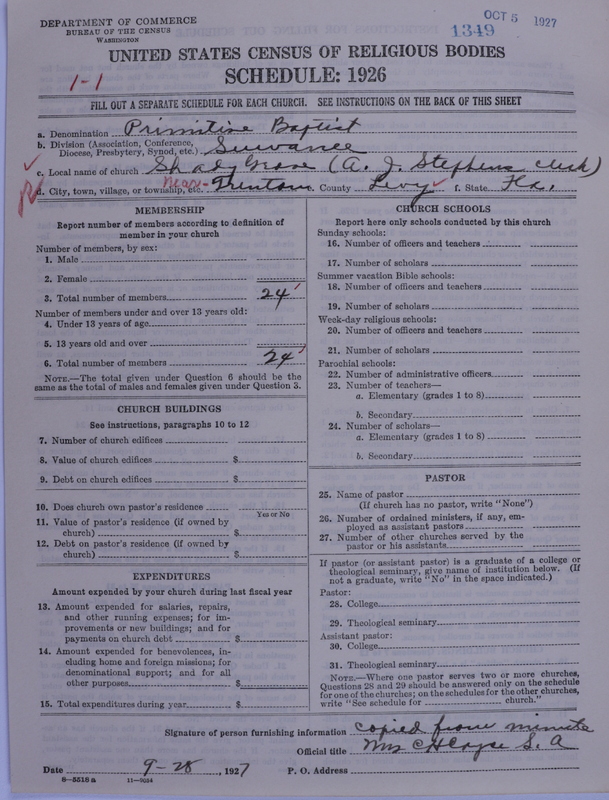 DEPARTMENT OF COMMERCE
BUREAU OF THE CENSUS
WASHINGTON
OCT 5 1927
1349
UNITED STATES CENSUS OF RELIGIOUS BODIES
1-1
SCHEDULE: 1926
FILL OUT A SEPARATE SCHEDULE FOR EACH CHURCH. SEE INSTRUCTIONS ON THE BACK OF THIS SHEET
a. Denomination Primitive Baptist
b. Division (Association, Conference, Diocese, Presbytery, Synod, etc.) Suwanee
c. Local name of church Shady Grove (A. J. Stephens clerk)
d. City, town, village, or township, etc. Near-Trenton e. County Levy f. State Fla.
MEMBERSHIP
Report number of members according to definition of
member in your church
Number of members, by sex:
1. Male
2. Female
3. Total number of members 24
Number of members under and over 13 years old:
4. Under 13 years of age
5. 13 years old and over
6. Total number of members 24
NOTE.—The total given under Question 6 should be the
same as the total of males and females given under Question 3.
CHURCH BUILDINGS
See instructions, paragraphs 10 to 12
7. Number of church edifices
8. Value of church edifices $
9. Debt on church edifices $
10. Does church own pastor's residence
Yes or No
11. Value of pastor's residence (if owned by
church) $
12. Debt on pastor's residence (if owned by
church) $
EXPENDITURES
Amount expended by your church during last fiscal year
13. Amount expended for salaries, repairs,
and other running expenses; for im-
provements or new buildings; and for
payments on church debt $
14. Amount expended for benevolences, in-
cluding home and foreign missions; for
denominational support; and for all
other purposes $
15. Total expenditures during year $
CHURCH SCHOOLS
Report here only schools conducted by this church
Sunday schools:
16. Number of officers and teachers
17. Number of scholars
Summer vacation Bible schools:
18. Number of officers and teachers
19. Number of scholars
Week-day religious schools:
20. Number of officers and teachers
21. Number of scholars
Parochial schools:
22. Number of administrative officers
23. Number of teachers—
a. Elementary (grades 1 to 8)
b. Secondary
24. Number of scholars—
a. Elementary (grades 1 to 8)
b. Secondary
PASTOR
25. Name of pastor
(If church has no pastor, write "None")
26. Number of ordained ministers, if any, em-
ployed as assistant pastors
27. Number of other churches served by the
pastor or his assistants
If pastor (or assistant pastor) is a graduate of a college or
theological seminary, give name of institution below. (If
not a graduate, write "No" in the space indicated.)
Pastor:
28. College
29. Theological seminary
Assistant pastor:
30. College
31. Theological seminary
NOTE.—Where one pastor serves two or more churches,
Questions 28 and 29 should be answered only on the schedule
for one of the churches; on the schedules for the other churches,
write "See schedule for church."
Signature of person furnishing information copied from minute
Official title Mrs C H Cayce S. A
Date 9-28, 1927 P. O. Address
8-5518a 11-9054